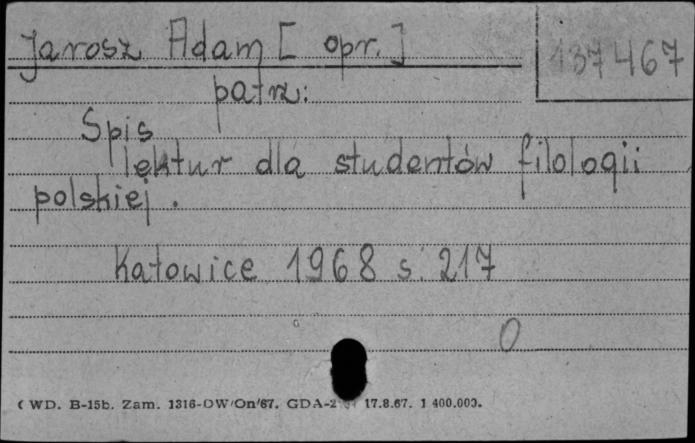 Jarosz Adam [ opr. ]
137467
patrz:
Spis
lektur dla studentów filologii
polskiej .
Katowice 1968 s. 217
0
( WD. B-15b. Zam. 1316-DW/On/67. 17.8.67. 1 400.000.